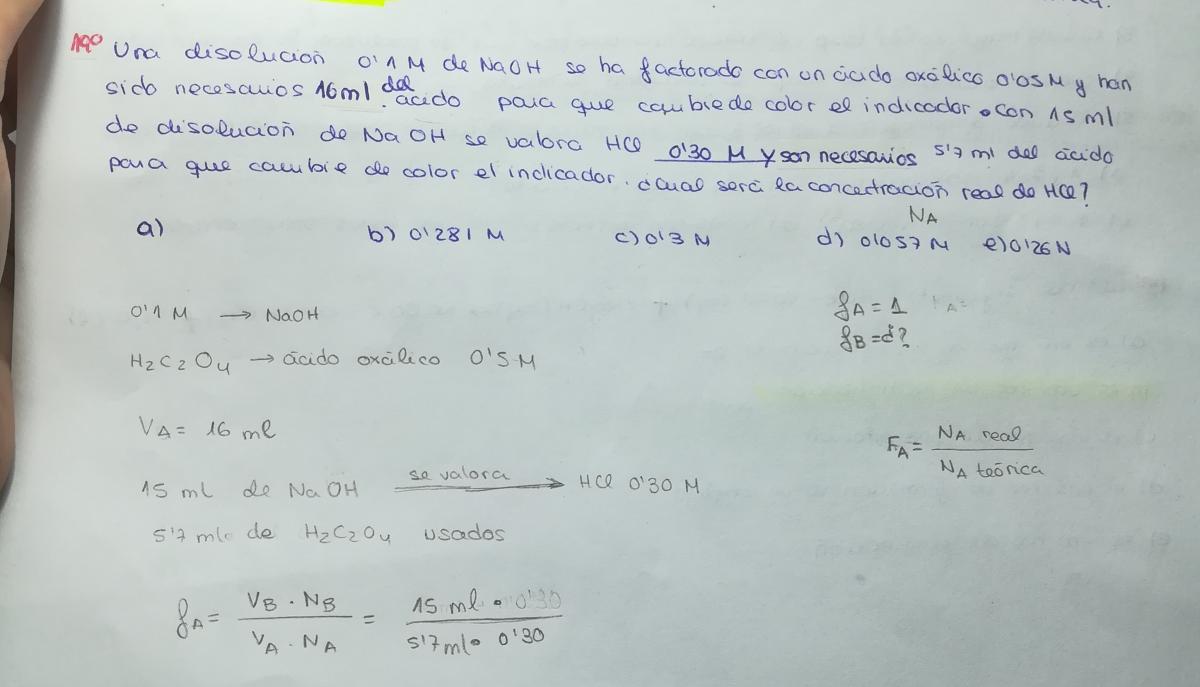 19º Una disolución 0'1 M de NaOH se ha factorado con un ácido oxálico 0'05 M y han
sido necesarios 16 ml del ácido para que cambie de color el indicador. Con 15 ml
de disolución de NaOH se valora HCl 0'30 M y son necesarios 5'7 ml del ácido
para que cambie de color el indicador. ¿Cual será la concentración real de HCl?
NA
a) b) 0'281 M c) 0'3 M d) 0'057 M e) 0'26 N
0'1 M → NaOH
fA = 1
fB = ¿?
H2C2O4 → ácido oxálico 0'5 M
VA = 16 ml
FA = NA real / NA teórica
15 ml de NaOH se valora → HCl 0'30 M
5'7 ml de H2C2O4 usados
fA = VB · NB / VA · NA = 15 ml · 0'30 / 5'7 ml · 0'30